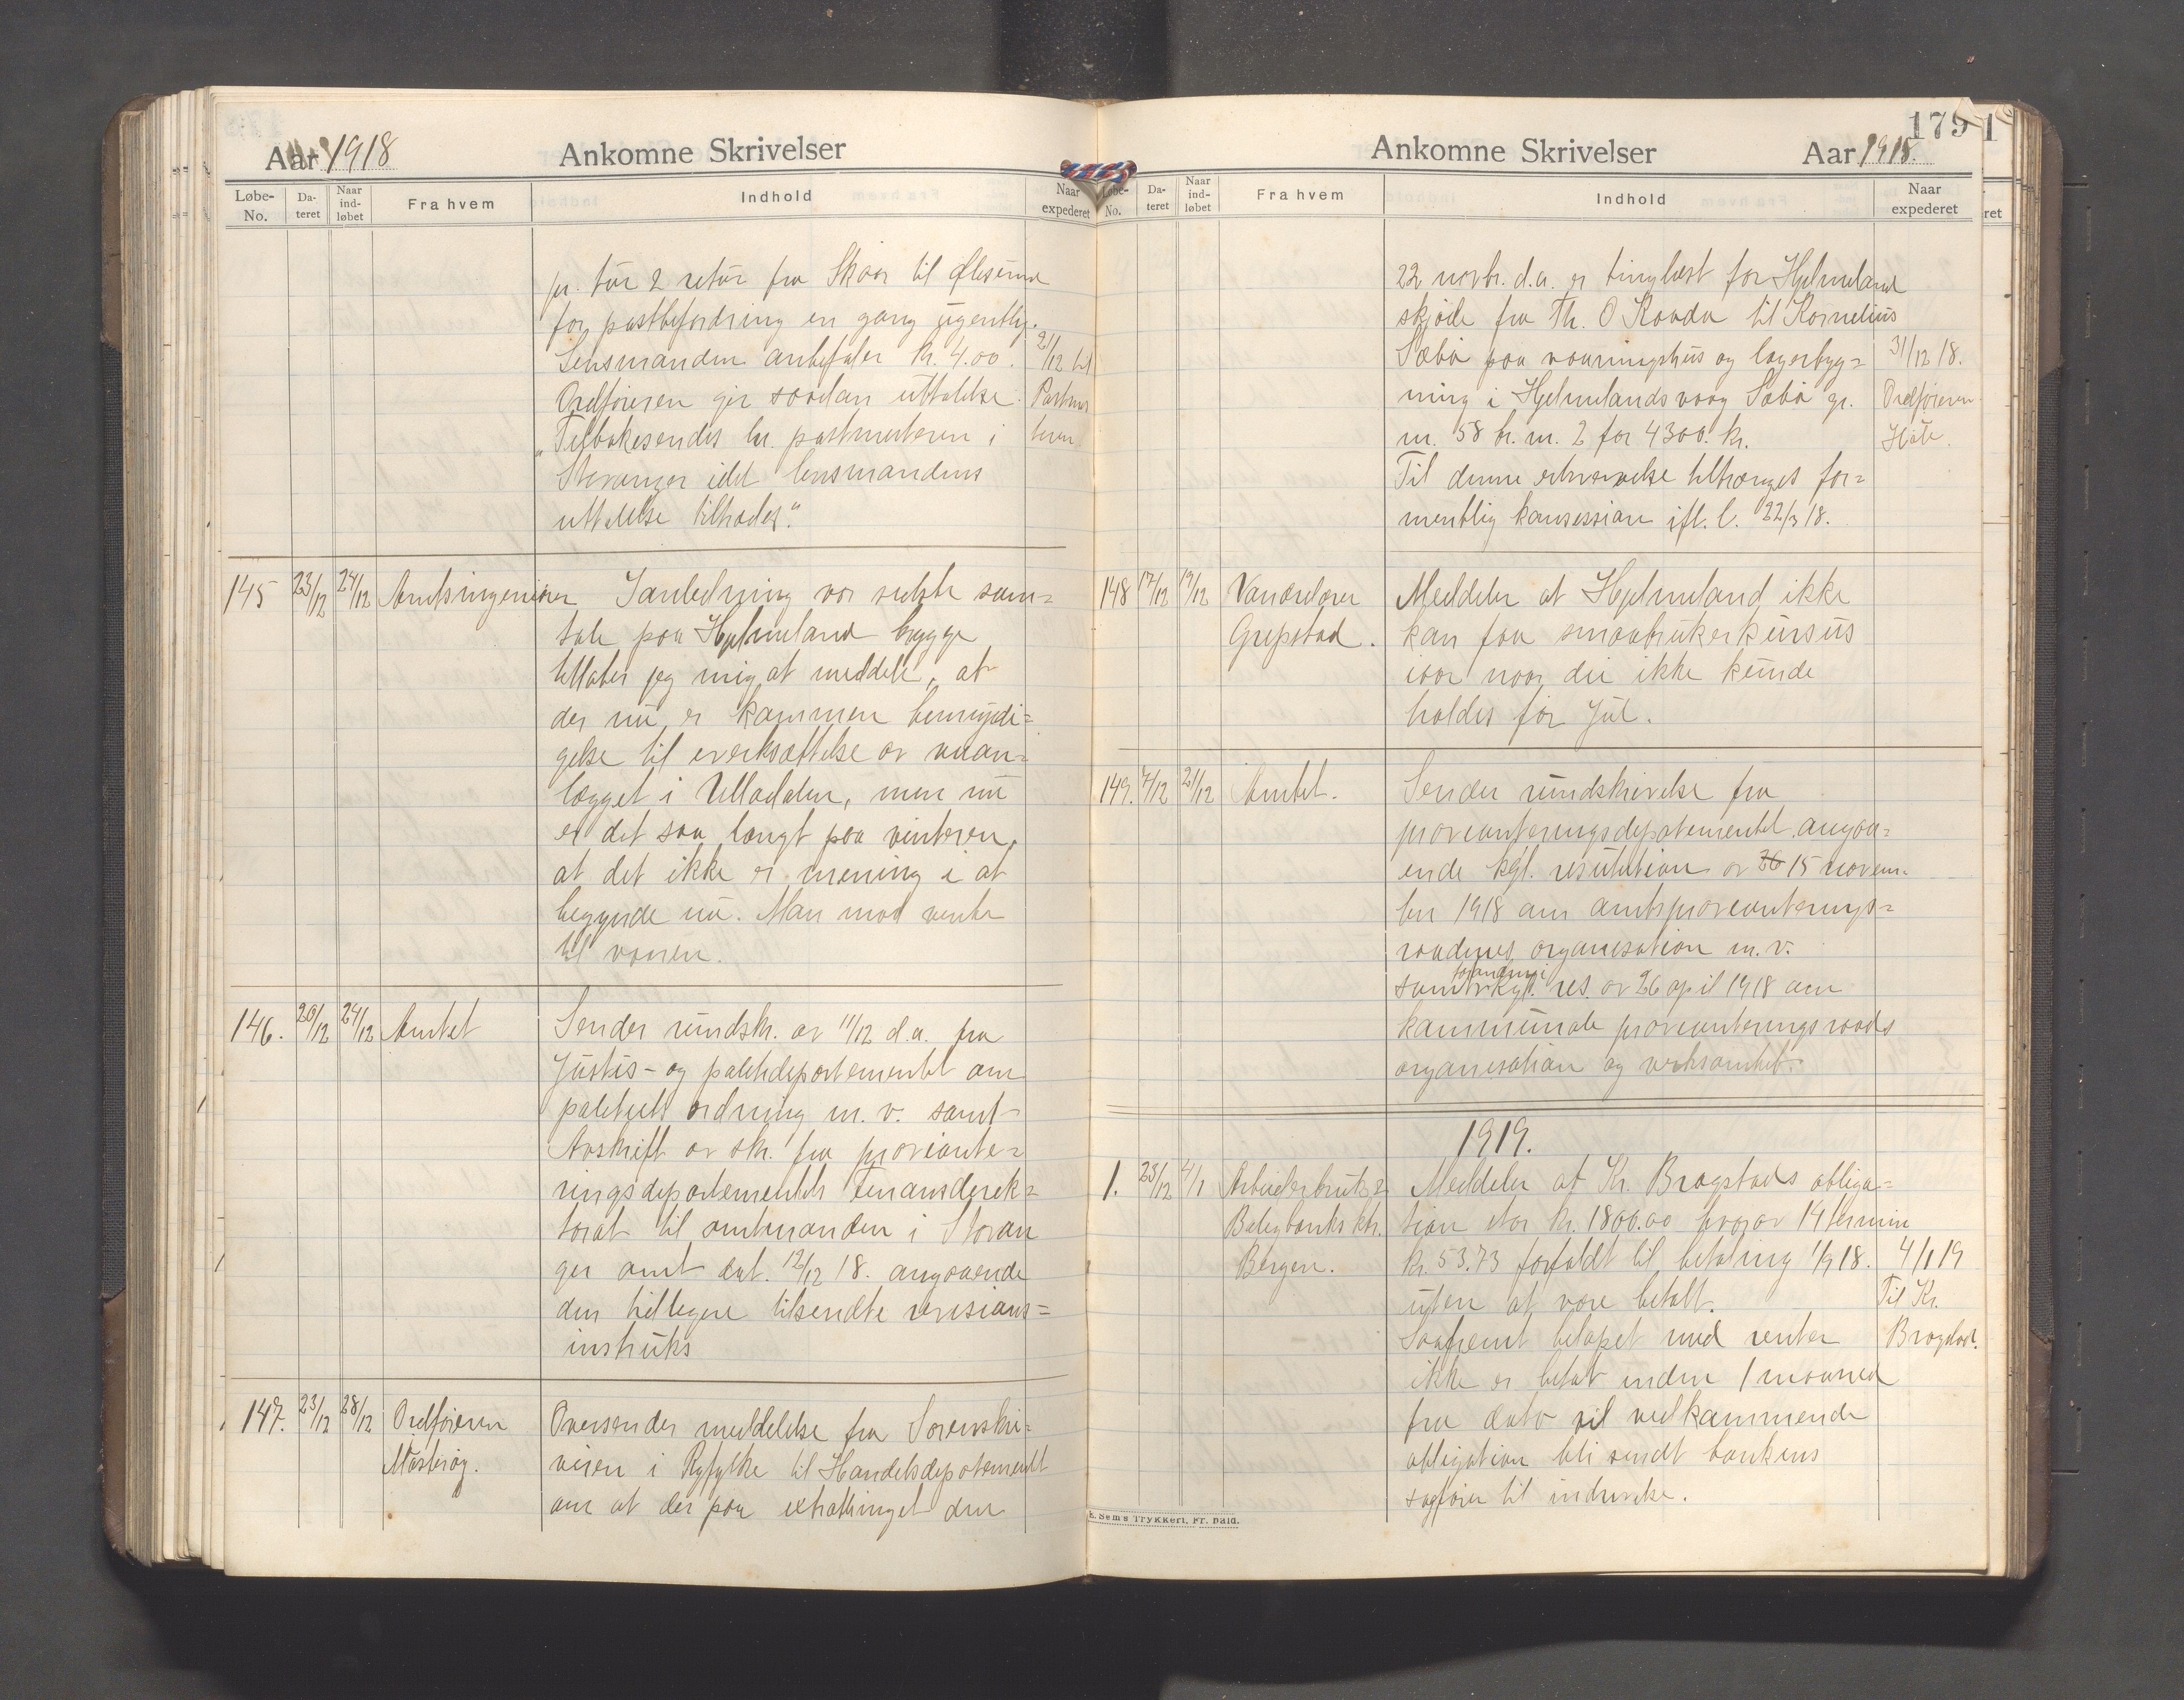 Aar 1918 Ankomne Skrivelser
Løbe-No. Dateret Naar indløbet Fra hvem Indhold Naar expederet
pr. tur 2 retur fra Skaar til
for postbefordring en gang ugentlig.
Lensmanden anbefaler kr. 4.00. 2/12 til
Ordføreren gir saadan uttalelse: Postmes
"Tilbakesendes hr. postmesteren i teren
Stavanger idet lensmandens
uttalelse tiltrædes."
145 23/12 24/12 Amtsingeniøren I anledning vor sidste sam=
tale paa Hjelmeland brygge
tillater jeg mig at meddele, at
der nu er kommen bemyndi=
gelse til iverksættelse av veian=
lægget i Ulladalen, men nu
er det saa langt paa vinteren,
at det ikke er mening i at
begynde nu. Man maa vente
til vaaren.
146. 20/12 24/12 Amtet Sender rundskr. av 11/12 d.a. fra
Justis- og politidepartementet om
politiets ordning m.v. samt
Avskrift av skr. fra proviante=
ringsdepartementets Finansdirek=
torat til amtmanden i Stavan
ger amt dat. 12/12 18. angaaende
den tidligere tilsendte revisions=
instruks
147. 23/12 28/12 Ordføreren Oversender meddelelse fra Sorenskri=
Mosterøy. veren i Ryfylke til Handelsdepartementet
om at der paa extratinget den
179
Ankomne Skrivelser Aar 1918.
Løbe-No. Dateret Naar indløbet Fra hvem Indhold Naar expederet
22 novbr. d.a. er tinglæst for Hjelmeland
skjøde fra Th. O Raada til Kornelius
Sæbø paa vaaningshus og lagerbyg= 31/12 18.
ning i Hjelmelandsvaag Sæbø gr. Ordføreren
nr. 58 br. nr. 2 for 4300. kr.
Til denne erhvervelse tiltrænges for=
mentlig konsession ifl. l. 22/3 18.
148 17/12 19/12 Vandrelærer Meddeler at Hjelmeland ikke
Grepstad. kan faa smaabrukerkursus
iaar naar det ikke kunde
holdes før Jul.
149. 7/12 21/12 Amtet. Sender rundskrivelse fra
provianteringsdepartementet angaa=
ende kgl. resulution av 26 15 novem=
ber 1918 om amtsprovianterings=
raadenes organisation m.v.
forandring i
samt kgl. res. av 26 april 1918 om
kommunale provianteringsraads
organisation og verksomhet.
1919.
1. 23/12 4/1 Arbeiderbruk & Meddeler at Kr. Bragstads obliga=
Boligbanks ktr. tion stor kr. 1800.00 hvorav 14 termin
Bergen. kr. 53.73 forfaldt til betaling 1/9 18. 4/1 19
uten at være betalt. Til Kr.
Saafremt beløpet med renter Bragstad.
ikke er betalt inden 1 maaned
fra dato vil vedkommende
obligation bli sendt bankens
sagfører til inddrivelse.
E. Sem's Trykkeri, Fr. hald.